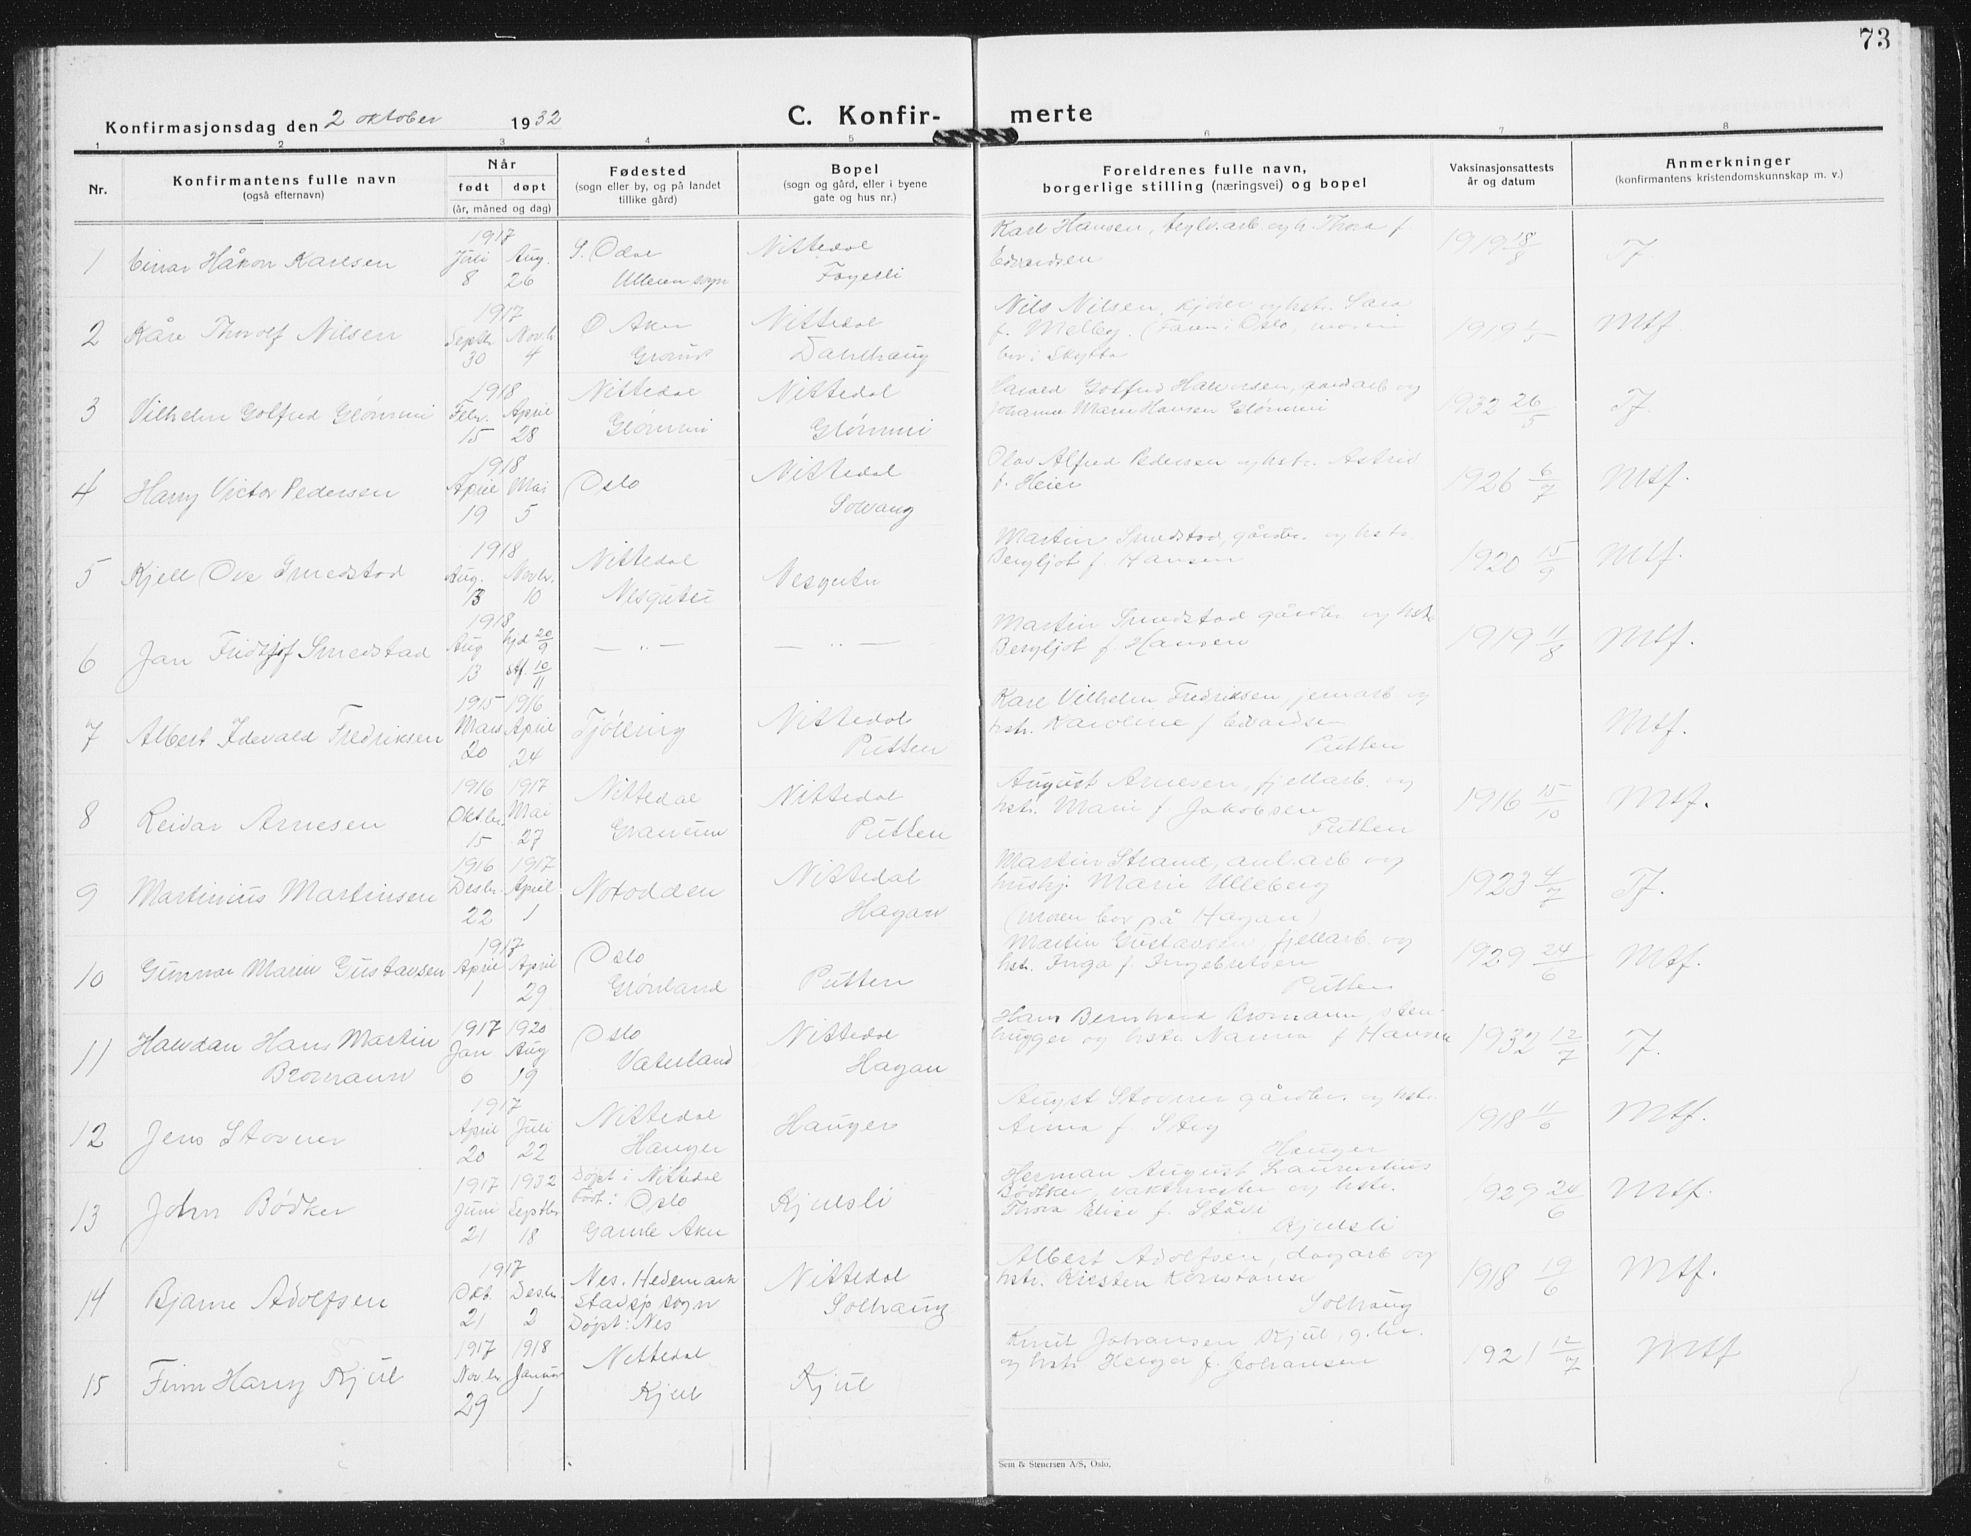 73
Konfirmasjonsdag den 2 oktober 1932
C. Konfir- merte
1 2 3 4 5 6 7 8
Nr.
Konfirmantens fulle navn
(også efternavn)
Når
født døpt
(år, måned og dag)
Fødested
(sogn eller by, og på landet
tillike gård)
Bopel
(sogn og gård, eller i byene
gate og hus nr.)
Foreldrenes fulle navn,
borgerlige stilling (næringsvei) og bopel
Vaksinasjonsattests
år og datum
Anmerkninger
(konfirmantens kristendomskunnskap m. v.)
1 Einar Håkon Karlsen
1917
Juli 8 Aug. 26
S. Odal
Ullern sogn
Nittedal
Karl Hansen, teglv.arb. og h. Thora f.
Edvardsen
1919 18/8
Tf.
2 Kåre Thorolf Nilsen
1917
Septbr. 30 Novbr. 4
Ø Aker
Grorud
Nittedal
Dahlhaug
Nils Nilsen, kjører og hstr. Sara
f. Melby. (Faren i Oslo, moren
bor i Skytta
1919
Mtf.
3 Vilhelm Golfred Glømmi
1918
Febr. 15 April 28
Nittedal
Glømmi
Nittedal
Glømmi
Harald Golfred Halvorsen, gardarb og
Johanne Marie Hansen Glømmi
1932 26/5
Tf.
4 Harry Victor Pedersen
1918
April 19 Mai 5
Oslo
Nittedal
Solvang
Olav Alfred Pedersen og hstr. Astrid
f. Heier
1926 6/7
Mtf.
5 Kjell Ove Smedstad
1918
Aug. 13 Novbr. 10
Nittedal
Nesgutu
Nesgutu
Martin Smedstad, gårdbr. og hstr.
Bergljot f. Hansen
1920 15/9
Mtf.
6 Jan Fridtjof Smedstad
1918
Aug 13 hjd 20/9 stf. 10/11
— " —
— " —
Martin Smedstad gårdbr og hstr
Bergljot f. Hansen
1919 11/8
Mtf.
7 Albert Idevald Fredriksen
1915 1916
Mars 20 April 24
Tjølling
Nittedal
Putten
Karl Vilhelm Fredriksen, jernarb og
hstr. Karoline f Edvardsen
Putten
Mtf.
8 Reidar Arnesen
1916 1917
Oktbr. 15 Mai 27
Nittedal
Granum
Nittedal
Putten
August Arnesen, fjellarb. og
hstr. Marie f Jakobsen
Putten
1916 15/10
Mtf.
9 Martinius Martinsen
1916 1917
Desbr. 22 April 1
Notodden
Nittedal
Hagan
Martin Strand, anl.arb og
hushj. Marie Ulleberg
(moren bor på Hagan)
1923 4/7
Tf.
10 Gunnar Marin Gustavsen
1917
April 1 April 29
Oslo
Grønland
Putten
Martin Gustavsen, fjellarb. og
hstr. Inga f. Ingebretsen
Putten
1929 24/6
Mtf.
11 Halvdan Hans Martin
Bromann
1917 1920
Jan 6 Aug 19
Oslo
Vaterland
Nittedal
Hagan
Hans Bernhard Bromann, sten-
hugger og hstr. Nanna f Hansen
1932 12/7
Tf.
12 Jens Stovner
1917
April 20 Juli 22
Nittedal
Hauger
Hauger
August Stovner gårdbr. og hstr.
Anna f.
Hauger
1918 11/6
Mtf.
13 John Bødker
1917 1932
Juni 21 Septbr 18
Døpt i Nittedal
født: Oslo
Gamle Aker
Kjulsli
Herman August Laurentius
Bødker, vaktmester og hstr.
Thora Elise f.
Kjulsli
1929 24/6
Mtf.
14 Bjarne Adolfsen
1917
Okt. 21 Desbr. 2
Nes. Hedemark
sogn
Døpt: Nes
Nittedal
Solhaug
Albert Adolfsen, dagarb og
hstr. Kirsten Konstanse
Solhaug
1918 19/6
Mtf.
15 Finn Harry Kjul
1917 1918
Novbr. 29 Januar 1
Nittedal
Kjul
Kjul
Knut Johansen Kjul, g.br.
og hstr. Helga f. Johansen
1921 12/7
Mtf
Sem & Stenersen A/S, Oslo.